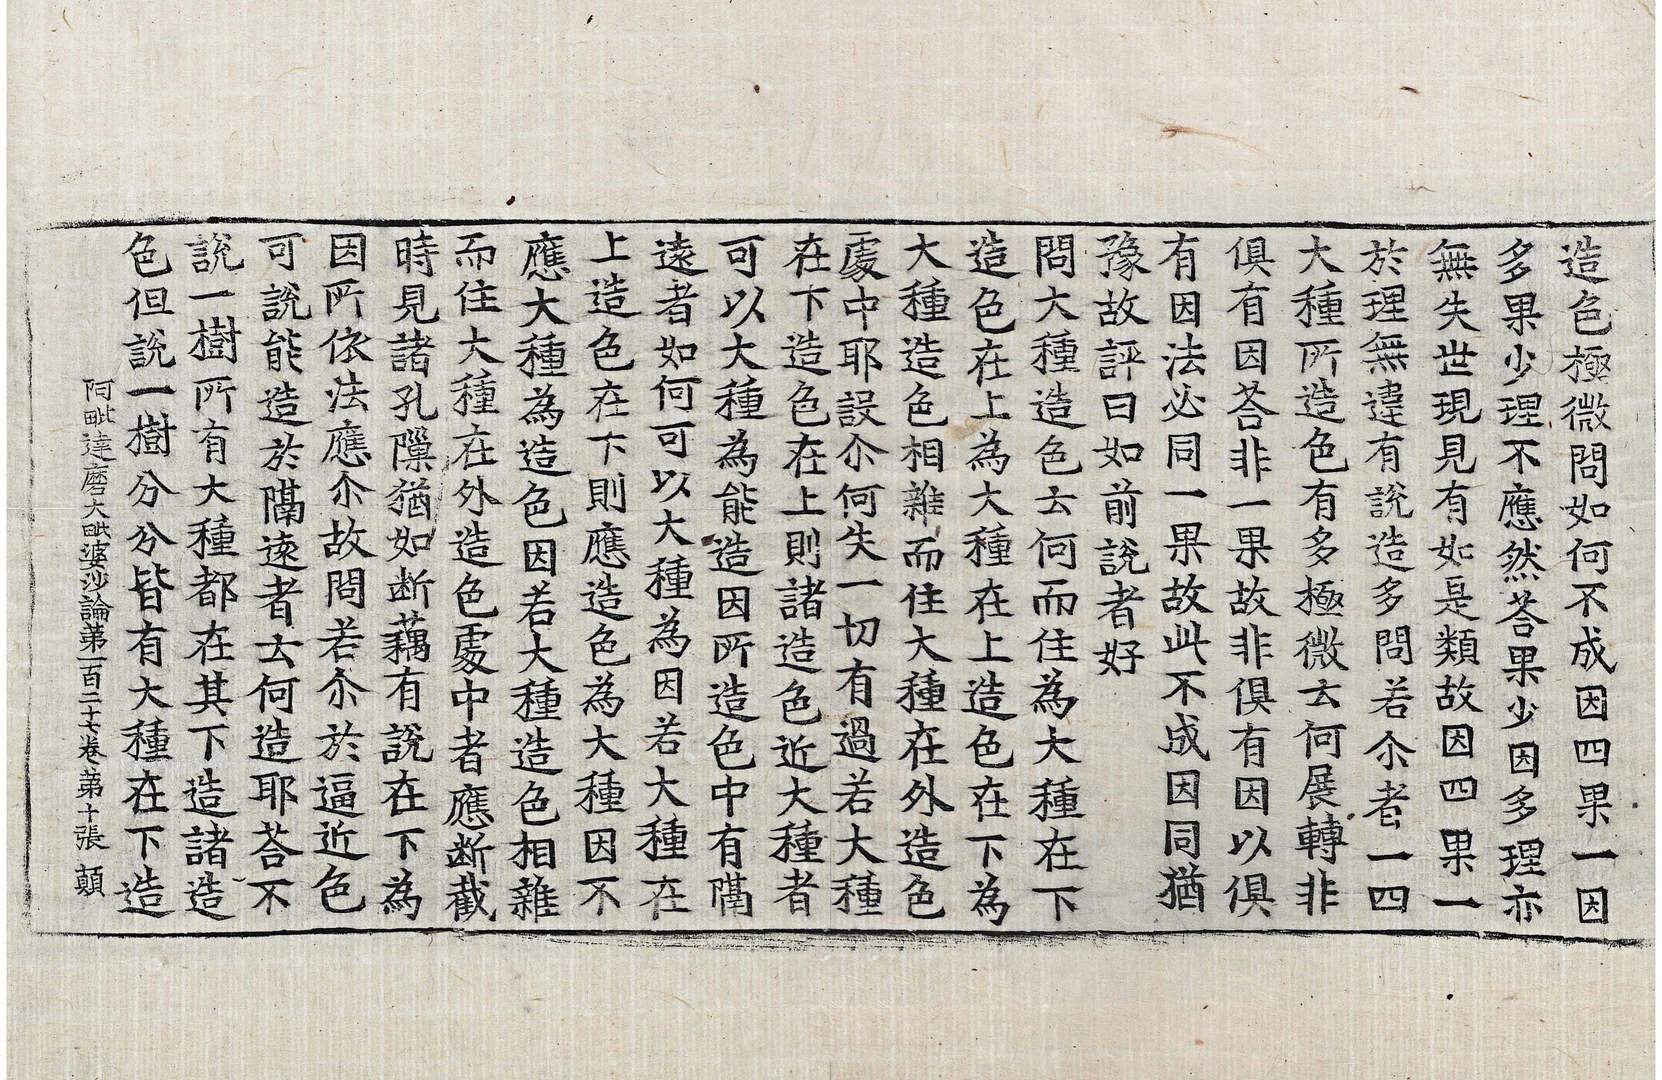 造色極微問如何不成因四果一因
多果少理不應然荅果少因多理亦
無失世現見有如是類故因四果一
於理無違有說造多問若尒者一四
大種所造色有多極微云何展轉非
俱有因荅非一果故非俱有因以俱
有因法必同一果故此不成因同猶
豫故評曰如前說者好
問大種造色云何而住為大種在下
造色在上為大種在上造色在下為
大種造色相雜而住大種在外造色
處中耶設尒何失一切有過若大種
在下造色在上則諸造色近大種者
可以大種為能造因所造色中有隔
遠者如何可以大種為因若大種在
上造色在下則應造色為大種因不
應大種為造色因若大種造色相雜
而住大種在外造色處中者應断截
時見諸孔隟猶如断藕有說在下為
因所依法應尒故問若尒於逼近色
可說能造於隔遠者云何造耶荅不
說一樹所有大種都在其下造諸造
色但說一樹分分皆有大種在下造
阿毗達磨大毗婆沙論第一百二十七卷第十張 顛